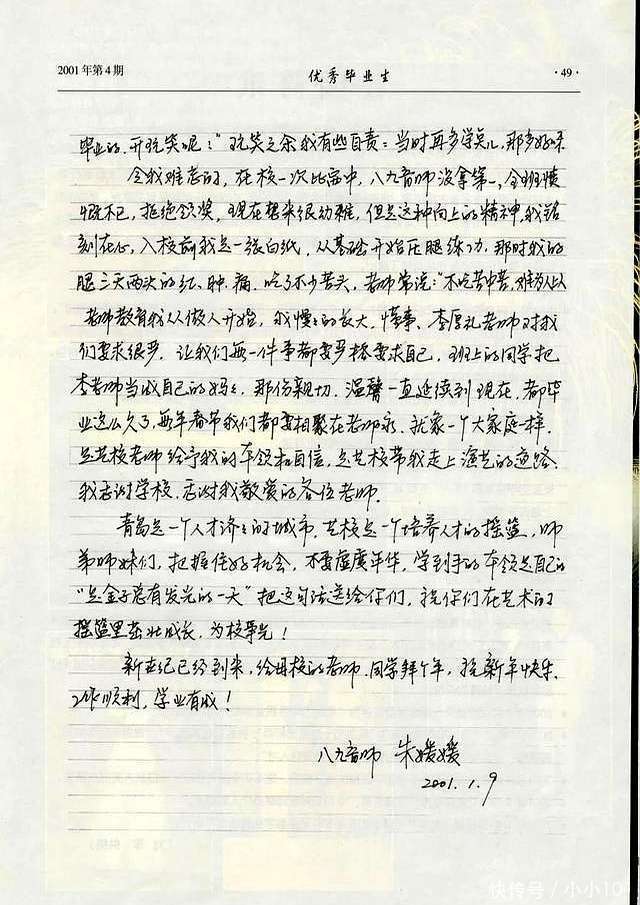 2001年第4期
优秀毕业生
·49·
毕业的,开玩笑呢:"玩笑之余我有些自责:当时再多学点儿,那多好呀
令我难忘的,在校一次比赛中,八九音师没拿第一,全班愤
慨不已,拒绝领奖,现在想来很幼稚,但是这种向上的精神,我铭
刻在心,入校前我是一张白纸,从基础开始压腿练功,那时我的
腿三天两头的红、肿、痛.吃了不少苦头,老师常说:"不吃苦中苦,难为人上人
老师教育我从做人开始,我慢々的长大,懂事、李厚礼老师对我
们要求很严,让我们每一件事都要严格要求自己,班上的同学把
李老师当成自己的妈々,那份亲切、温馨一直延续到现在,都毕
业这么久了,每年春节我们都要相聚在老师家,就象一个大家庭一样,
是艺校老师给予我的本领和自信,是艺校带我走上演艺的道路.
我感谢学校,感谢我敬爱的各位老师.
青岛是一个人才济々的城市,艺校是一个培养人才的摇篮,师
弟师妹们,把握住好机会,不要虚度年华,学到手的本领是自己的
"是金子总有发光的一天"把这句话送给你们,祝你们在艺术的
摇篮里茁壮成长,为校争光!
新世纪已经到来,给母校的老师、同学拜个年,祝新年快乐、
工作顺利,学业有成!
八九音师 朱媛媛
2001.1.9
快传号/小小10